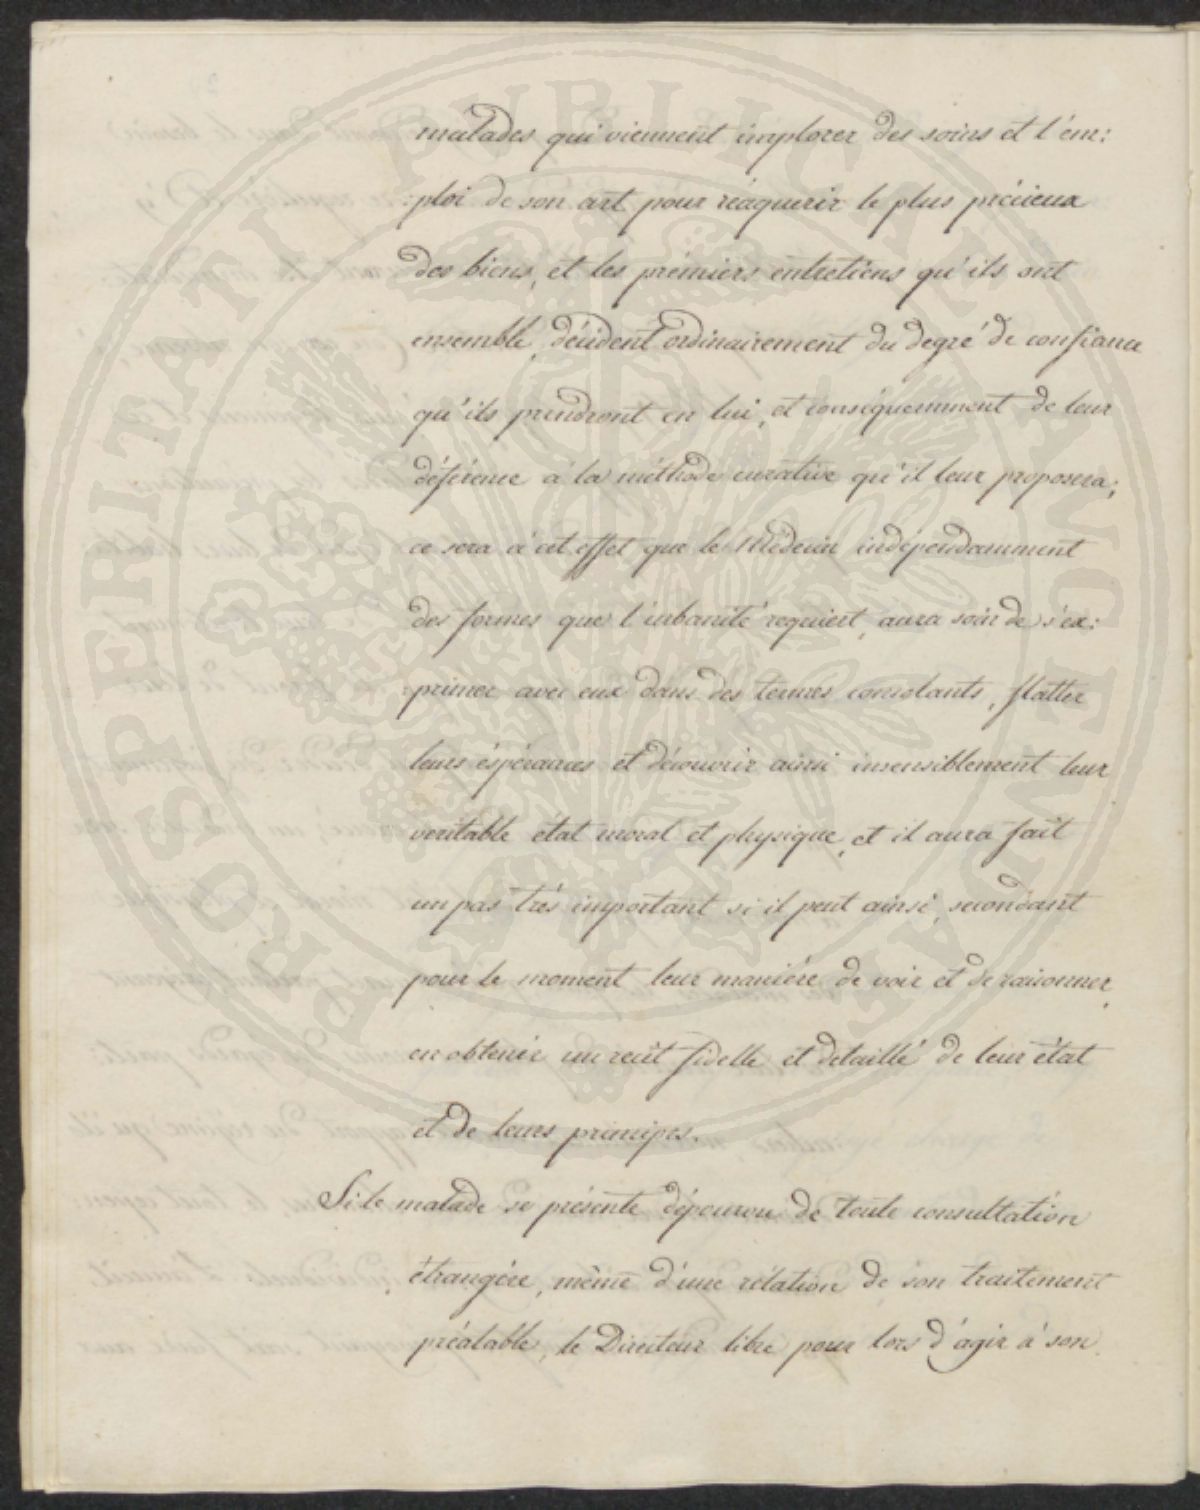 malades qui viennent implorer des soins et l'em:
:ploi de son art pour réaquerir le plus précieux
des biens, et les prémiers entretiens qu'ils ont
ensemble, décident ordinairement du degré de confiance
qu'ils prendront en lui, et conséquemment de leur
déférence à la méthode curative qu'il leur proposera;
ce sera à cet effet que le Médecin indépendamment
des formes que l'urbanité requiert, aura soin de s'ex:
:primer avec eux dans des termes consolants, flatter
leurs éspérances et découvrir ainsi insensiblement leur
veritable état moral et physique, et il aura fait
un pas très important si il peut ainsi, secondant
pour le moment leur manière de voir et de raisonner,
en obtenir un recit fidelle et detaillé de leur état
et de leurs principes.
Si le malade se présente dépourvu de toute consultation
étrangère, même d'une rélation de son traitement
préalable, le Directeur libre pour lors d'agir à son
PROSPERITATI PUBLICAE AVGENDAE